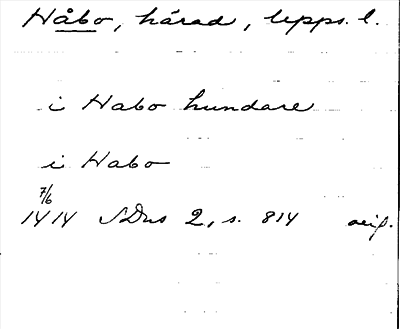 Håbo, härad, Upps. l.
i Habo hundare
i Habo
7/6
1414 SDns 2, s. 814 orig.